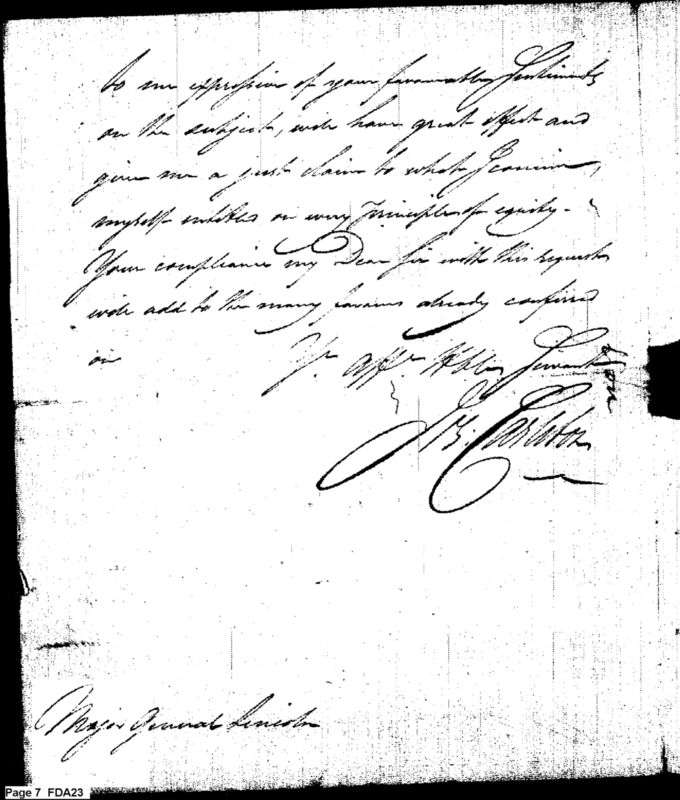 to me expressive of your favourable Sentiments
on the subject, wod. have great effect and
give me a just claim to what I conceive,
myself entitled on every principle of equity –
Your compliance my Dear Sir with this request
wod. add to the many favours already conferred
on
Yr. Affe. Hble. Servant
Js. Carleton
Major General Lincoln
Page 7 FDA23